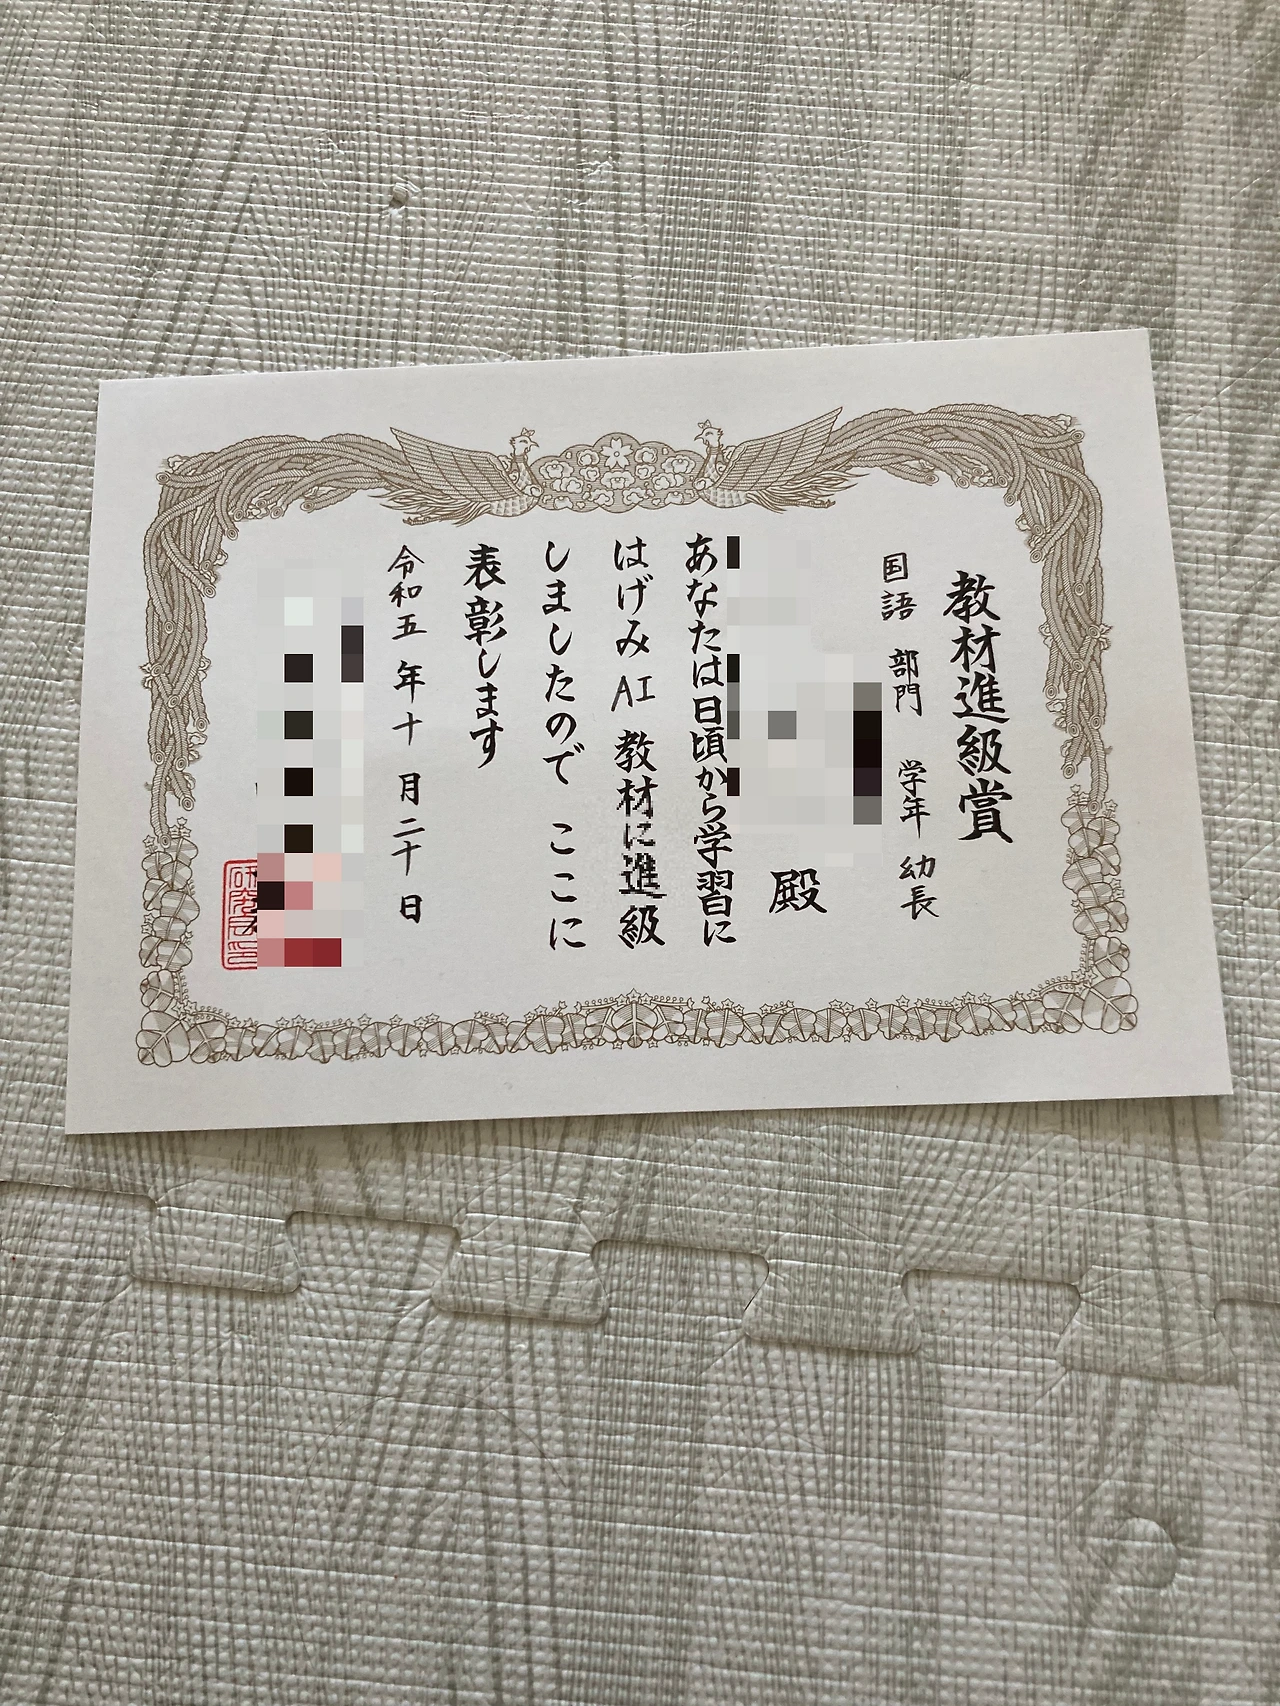 教材進級賞
国語 部門 学年 幼長
殿
あなたは日頃から学習に
はげみ AI 教材に進級
しましたので ここに
表彰します
令和五 年十 月二十 日